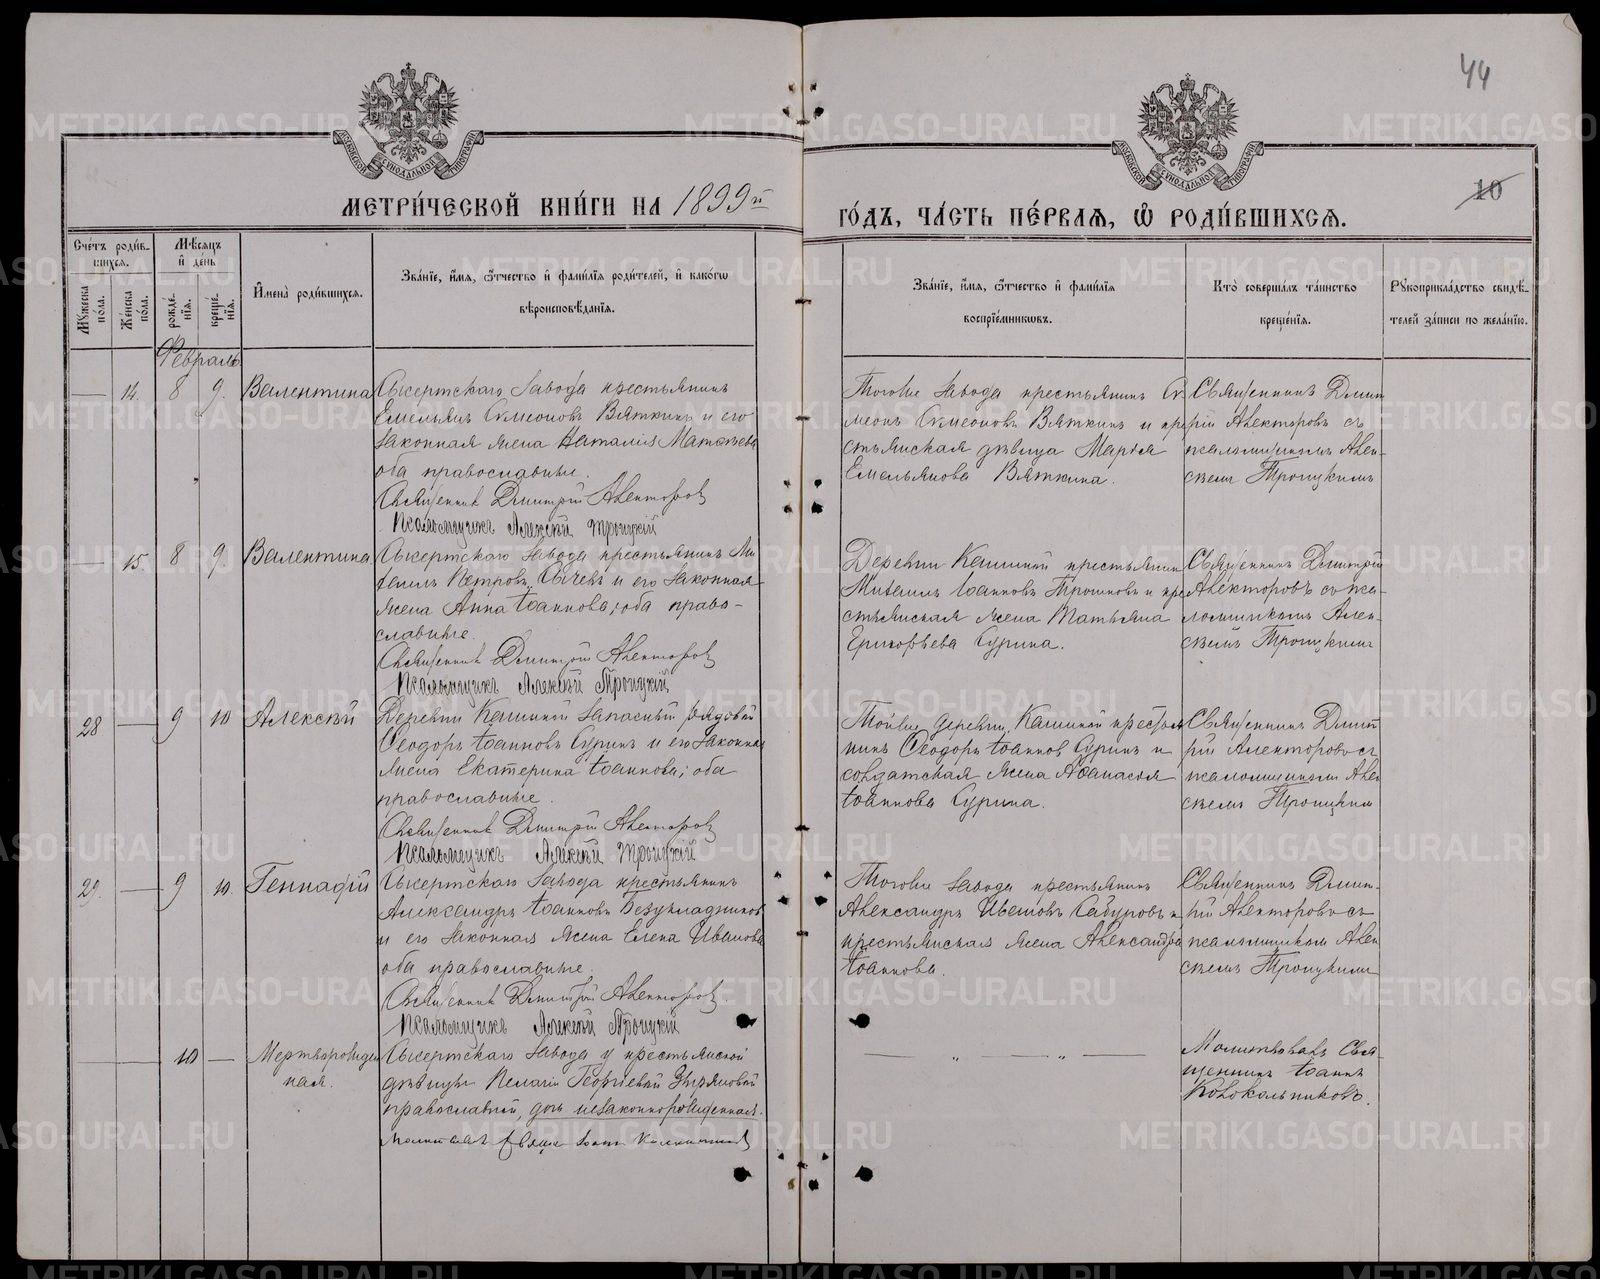 44
МОСКОВСКОЙ СѴНОДАЛЬНОЙ ТИПОГРАФІИ
МОСКОВСКОЙ СѴНОДАЛЬНОЙ ТИПОГРАФІИ
10
МЕТРИ́ЧЕСКОЙ КНИ́ГИ НА 1899й
ГО́ДЪ, ЧА́СТЬ ПЕ́РВАѦ, Ѡ РОДИ́ВШИХСѦ.
Сче́тъ роди́в-
шихсѧ.
Мꙋ́жеска
по́ла.
Же́нска
по́ла.
Мѣ́сѧцъ
и҆ де́нь
рожде́-
нїѧ.
креще́-
нїѧ.
И҆мена̀ роди́вшихсѧ.
Зва́нїе, и҆́мѧ, ѻ҆́тчество и҆ фамѝлїѧ роди́телей, и҆ како́гѡ
вѣроисповѣ́данїѧ.
Зва́нїе, и҆́мѧ, ѻ҆́тчество и҆ фамѝлїѧ
воспрїе́мникѡвъ.
Кто̀ соверша́лъ та́инство
креще́нїѧ.
Рꙋкоприкла́дство свидѣ́-
телей за́писи по жела́нїю.
Февраль
14. 8 9. Валентина
Сысертскаго Завода крестьянинъ
Емельянъ Симеоновъ Вяткинъ и его
законная жена Наталия Матѳеева
оба православные.
Священникъ Димитрій Авекторовъ
Псаломщикъ Алексѣй Троицкій
Тогоже Завода крестьянинъ Си
меонъ Симеоновъ Вяткинъ и кре
стьянская дѣвица Марія
Емельянова Вяткина.
Священникъ Димит
рій Авекторовъ съ
псаломщикомъ Алек-
сѣемъ Троицкимъ
15. 8 9 Валентина
Сысертскаго Завода крестьянинъ Ми
хаилъ Петровъ Сычевъ и его законная
жена Анна Іоаннова, оба право-
славные.
Священникъ Димитрій Авекторовъ
Псаломщикъ Алексѣй Троицкій
Деревни Кашиной крестьянин
Михаилъ Іоанновъ Трошковъ и кре
стьянская жена Татьяна
Григорьева Сурина.
Священникъ Димитрій
Авекторовъ съ пса-
ломщикомъ Алек-
сѣемъ Троицкимъ
28 9 10 Алексѣй
Деревни Кашиной запасный рядовой
Ѳеодоръ Іоанновъ Суринъ и его законная
жена Екатерина Іоаннова; оба
православные.
Священникъ Димитрій Авекторовъ
Псаломщикъ Алексѣй Троицкій
Тойже деревни Кашиной крестья
нинъ Ѳеодоръ Іоаннов Суринъ и
солдатская жена Аѳанасія
Іоаннова Сурина.
Священникъ Димит
рій Авекторовъ съ
псаломщикомъ Алек
сѣемъ Троицким
29. 9 10. Геннадій
Сысертскаго Завода крестьянинъ
Александръ Іоанновъ Безукладников
и его законная жена Елена Иванова
оба православные.
Священникъ Димитрій Авекторовъ.
Псаломщикъ Алексѣй Троицкій
Тогоже Завода крестьянинъ
Александръ Ивановъ Сабуровъ и
крестьянская жена Александра
Іоаннова.
Священникъ Димит-
рій Авекторовъ съ
псаломщиком Алек
сѣемъ Троицкимъ
10 Мертворожден
ная.
Сысертскаго Завода у крестьянской
дѣвицы Пелагіи Георгіевой Зыряновой
православной, дочь незаконнорожденная.
Молитвовалъ Свя-
щенникъ Іоаннъ
Колокольниковъ.
METRIKI.GASO-URAL.RU